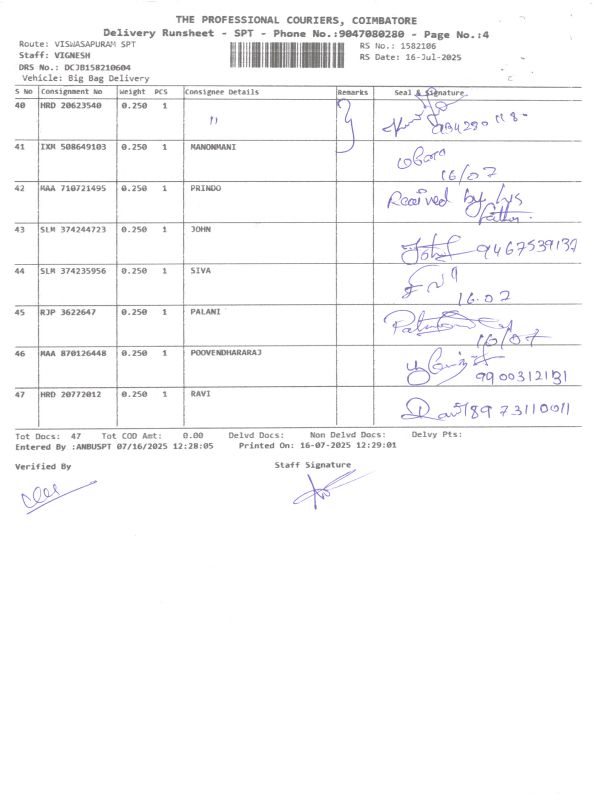 THE PROFESSIONAL COURIERS, COIMBATORE
Delivery Runsheet - SPT - Phone No.:9047080280 - Page No.:4
Route: VISWASAPURAM SPT RS No.: 1582106
Staff: VIGNESH RS Date: 16-Jul-2025
DRS No.: DCJB158210604
Vehicle: Big Bag Delivery
S No Consignment No Weight PCS Consignee Details Remarks Seal & Signature
40 HRD 20623540 0.250 1 "
41 IXM 508649103 0.250 1 MANONMANI
16/07
42 MAA 710721495 0.250 1 PRINDO Received by his
father.
43 SLM 374244723 0.250 1 JOHN John 9467539137
44 SLM 374235956 0.250 1 SIVA சிவா
16.07
45 RJP 3622647 0.250 1 PALANI
16/07
46 MAA 870126448 0.250 1 POOVENDHARARAJ
9900312131
47 HRD 20772012 0.250 1 RAVI Ravi 8973110011
Tot Docs: 47 Tot COD Amt: 0.00 Delvd Docs: Non Delvd Docs: Delvy Pts:
Entered By :ANBUSPT 07/16/2025 12:28:05 Printed On: 16-07-2025 12:29:01
Verified By Staff Signature